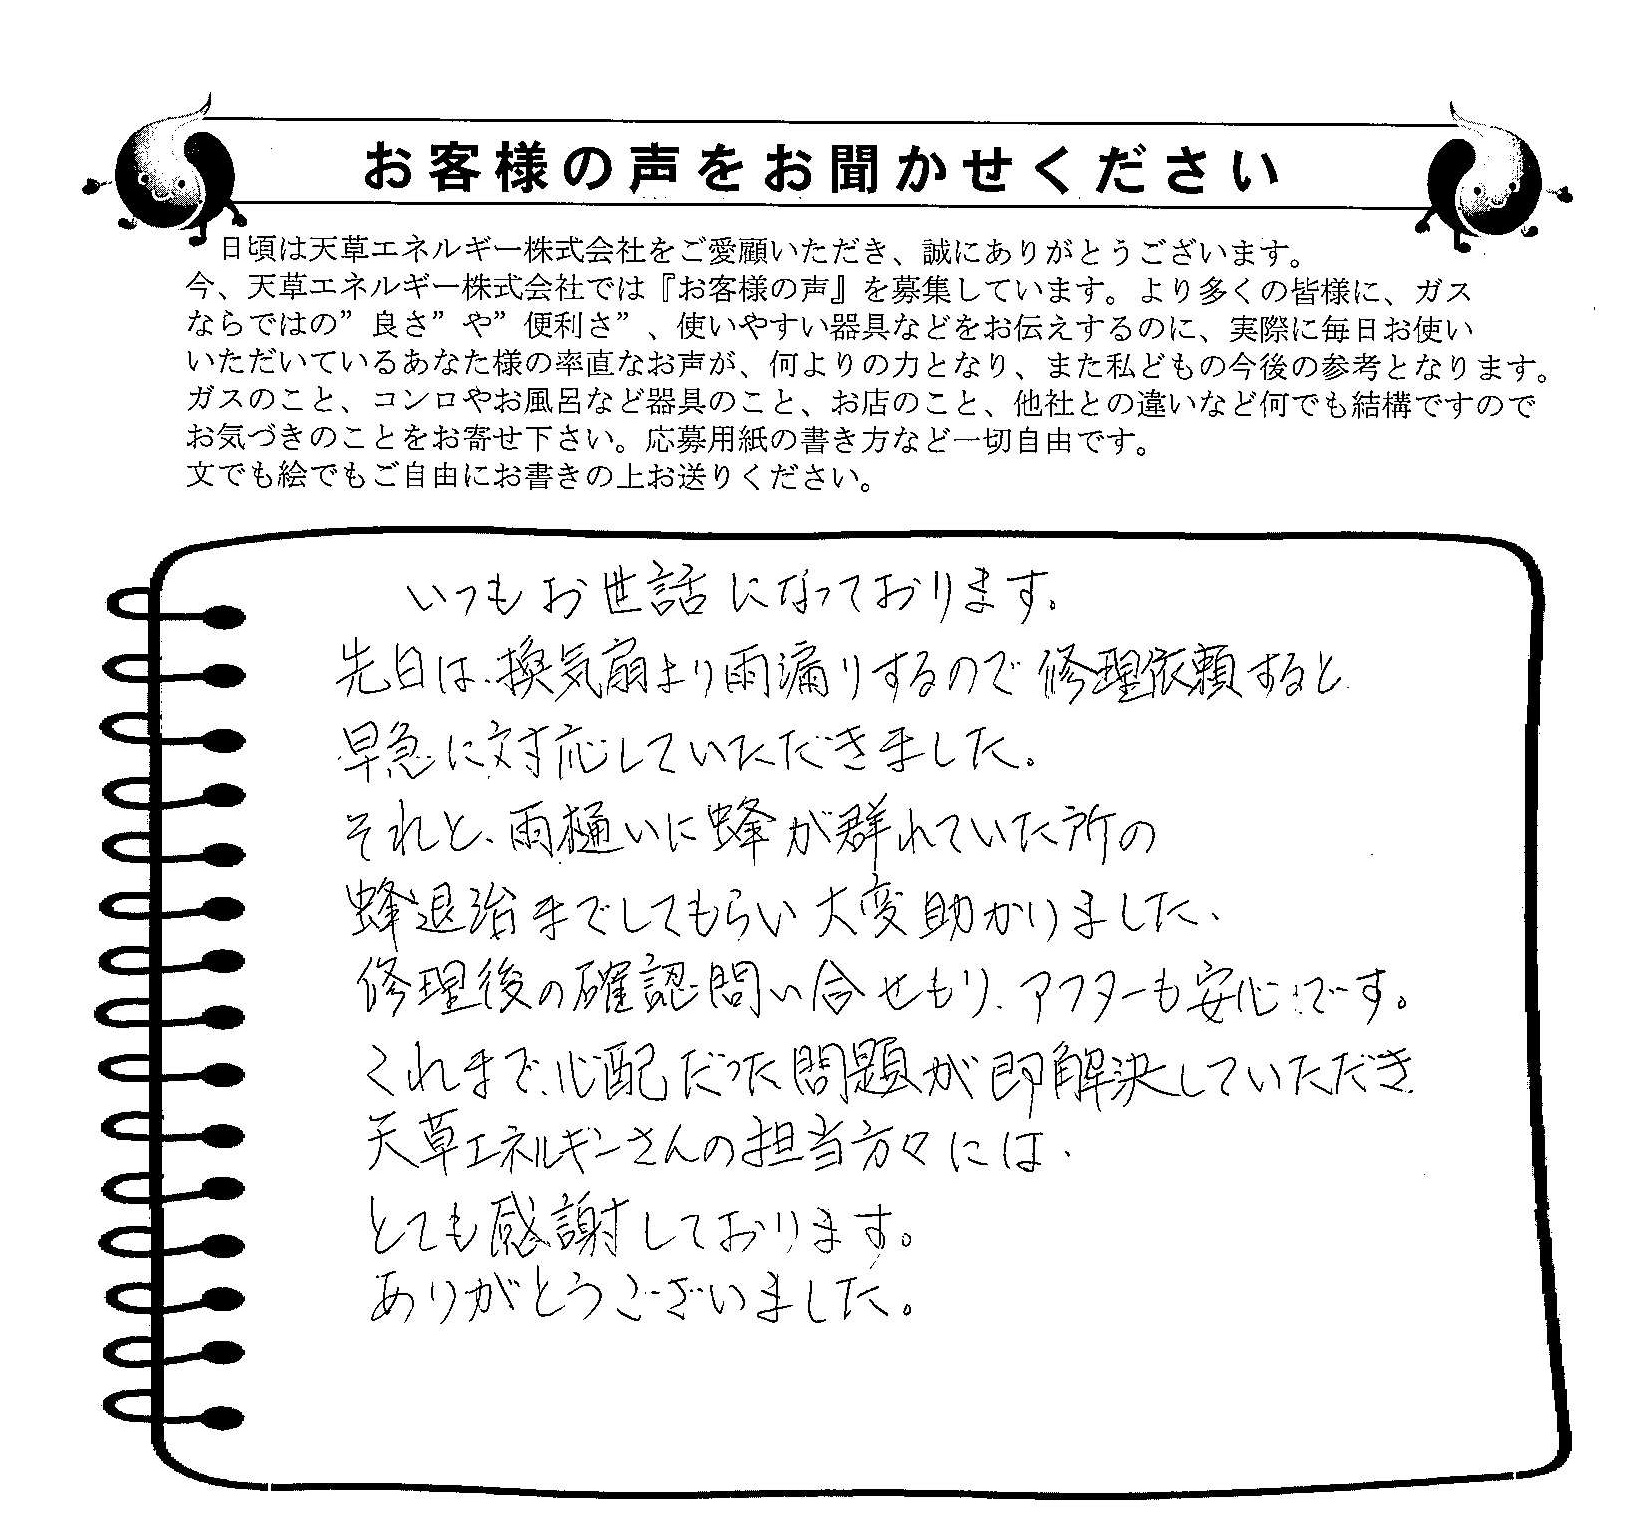 お客様の声をお聞かせください
日頃は天草エネルギー株式会社をご愛顧いただき、誠にありがとうございます。
今、天草エネルギー株式会社では『お客様の声』を募集しています。より多くの皆様に、ガス
ならではの”良さ”や”便利さ”、使いやすい器具などをお伝えするのに、実際に毎日お使い
いただいているあなた様の率直なお声が、何よりの力となり、また私どもの今後の参考となります。
ガスのこと、コンロやお風呂など器具のこと、お店のこと、他社との違いなど何でも結構ですので
お気づきのことをお寄せ下さい。応募用紙の書き方など一切自由です。
文でも絵でもご自由にお書きの上お送りください。
いつもお世話になっております。
先日は、換気扇より雨漏りするので修理依頼すると
早急に対応していただきました。
それと、雨樋いに蜂が群れていた所の
蜂退治までしてもらい大変助かりました、
修理後の確認問い合せもり、アフターも安心です。
これまで、心配だった問題が即解決していただき
天草エネルギーさんの担当方々には、
とても感謝しております。
ありがとうございました。